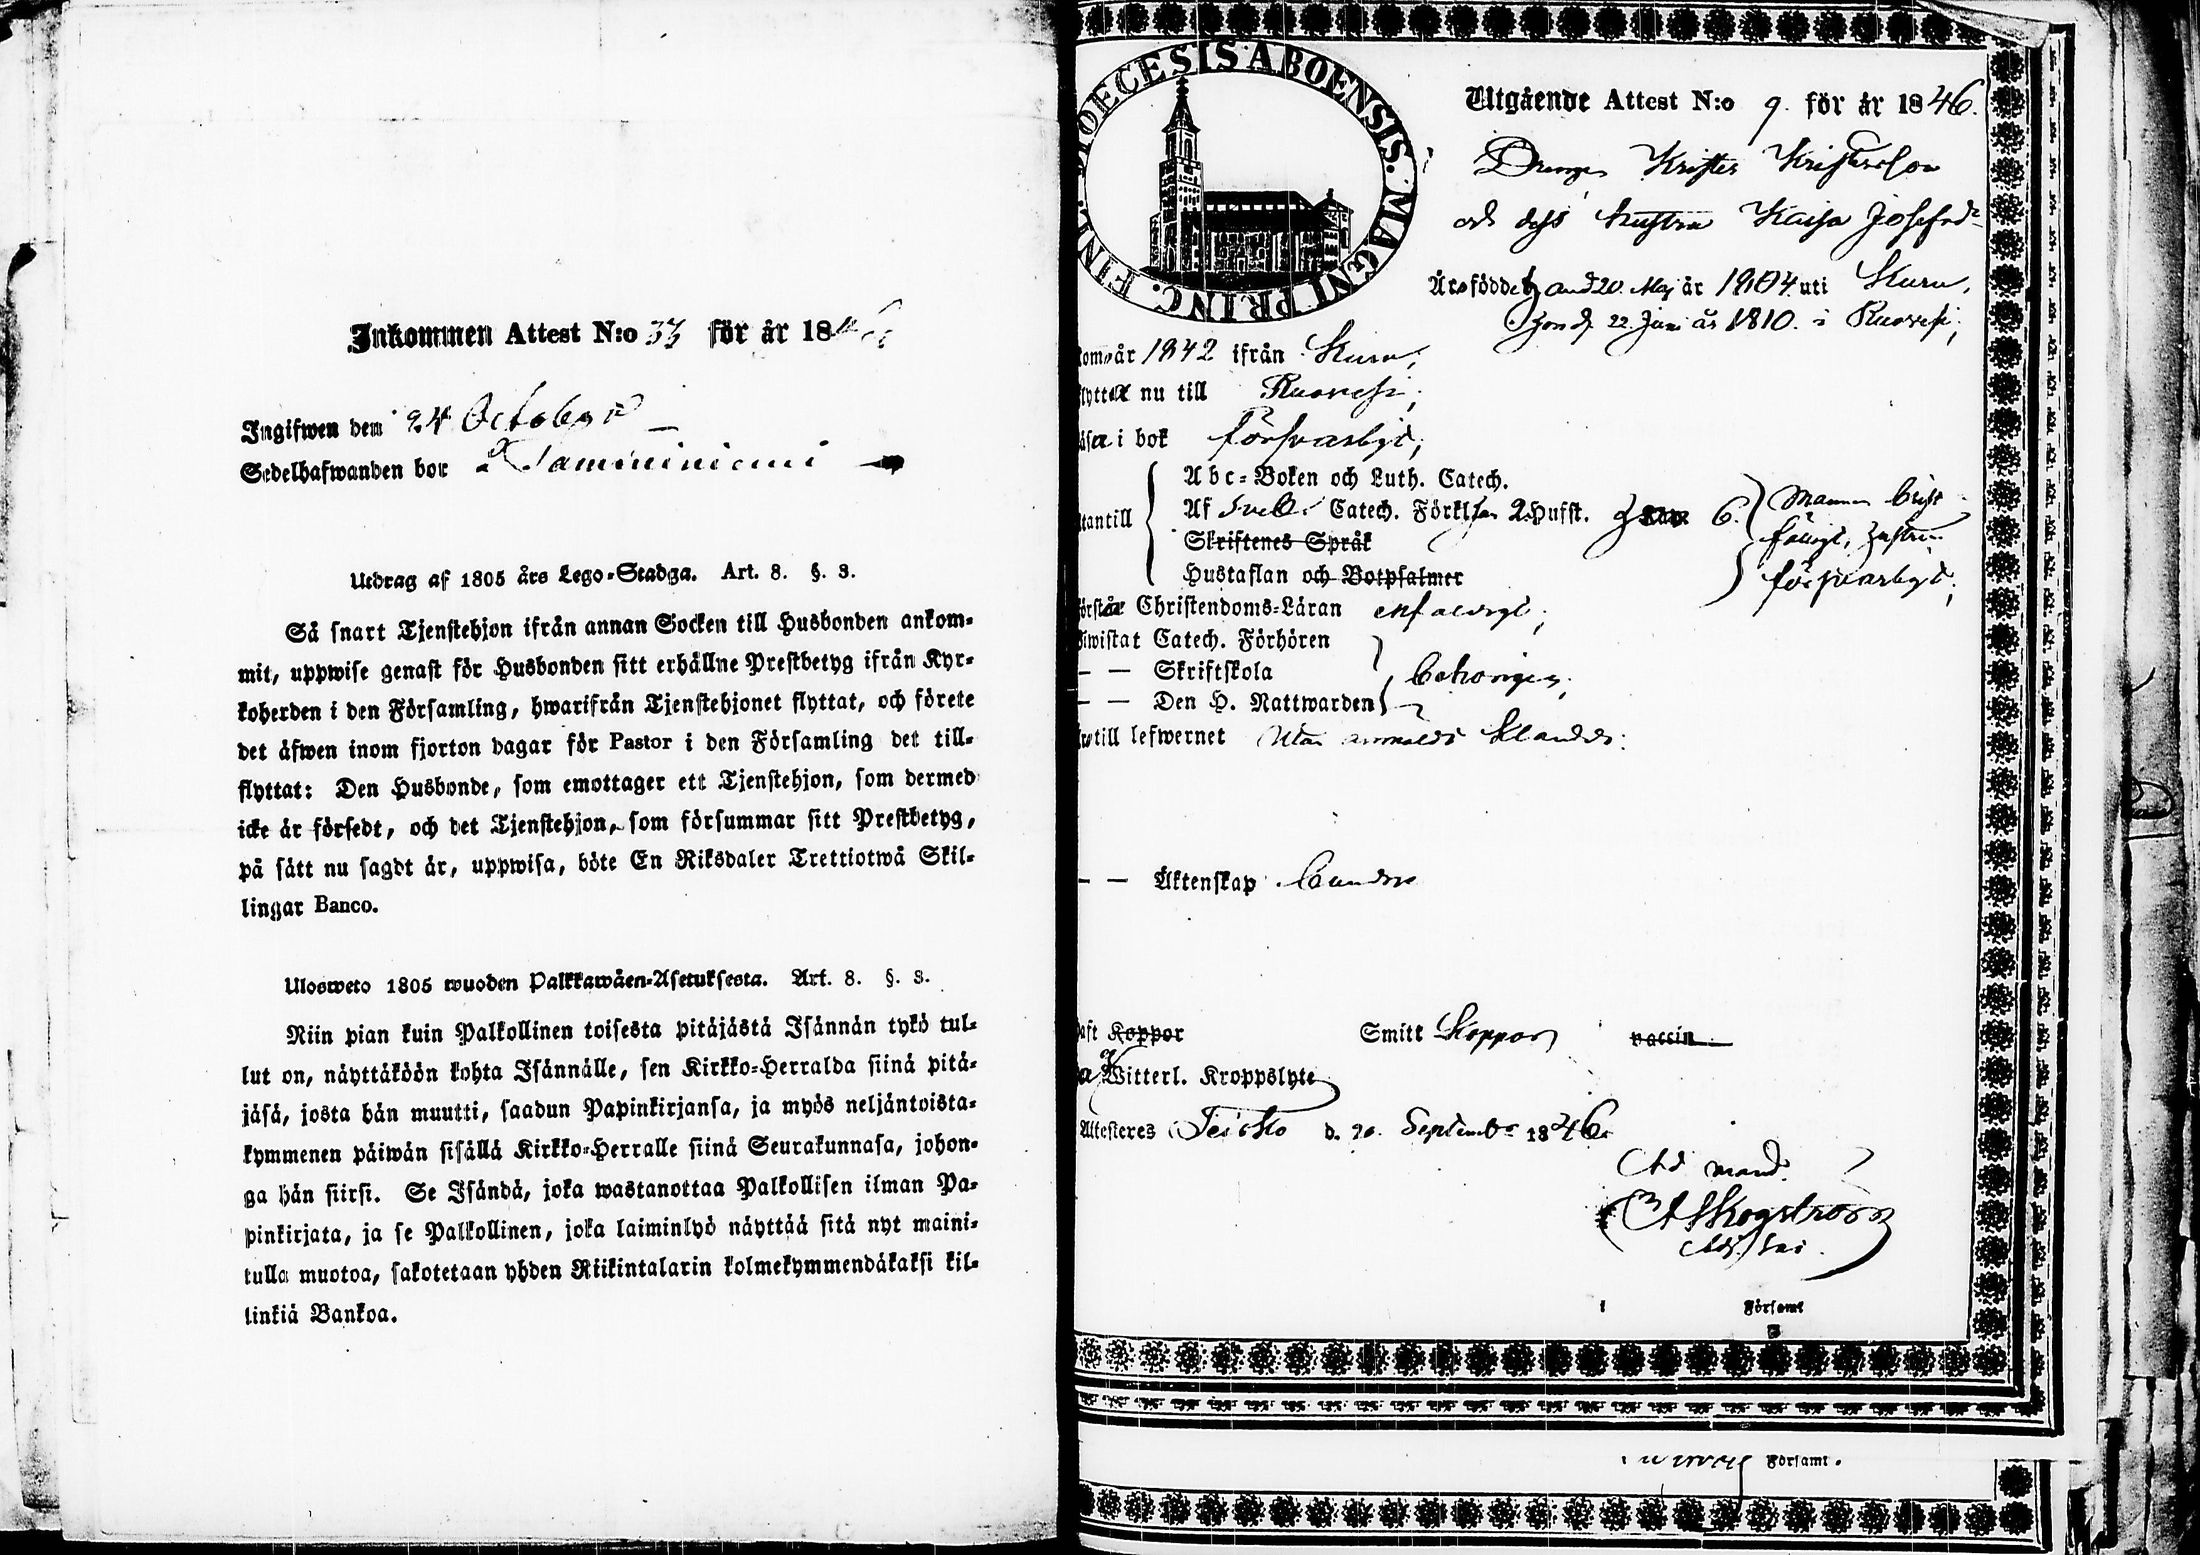 Inkommen Attest N:o 33 för år 1846
Ingifwen den 24 October
Sedelhafwanden bor i Tamminiemi
Utdrag af 1805 års Lego-Stadga. Art. 8. §. 3.
Så snart Tjenstehjon ifrån annan Socken till Husbonden ankom-
mit, uppwise genast för Husbonden sitt erhållne Prestbetyg ifrån Kyr-
koherden i den Församling, hwarifrån Tjenstehjonet flyttat, och förete
det äfwen inom fjorton dagar för Pastor i den Församling det till-
flyttat: Den Husbonde, som emottager ett Tjenstehjon, som dermed
icke är försedt, och det Tjenstehjon, som försummar sitt Prestbetyg,
på sätt nu sagdt är, uppwisa, böte En Riksdaler Trettiotwå Skil-
lingar Banco.
Ulosweto 1805 wuoden Palkkawäen-Asetuksesta. Art. 8. §. 3.
Niin pian kuin Palkollinen toisesta pitäjästä Isännän tykö tul-
lut on, näyttäköön kohta Isännälle, sen Kirkko-Herralda siinä pitä-
jäsä, josta hän muutti, saadun Papinkirjansa, ja myös neljäntoista-
kymmenen päiwän sisällä Kirkko-Herralle siinä Seurakunnasa, johon-
ga hän siirsi. Se Isändä, joka wastanottaa Palkollisen ilman Pa-
pinkirjata, ja se Palkollinen, joka laiminlyö näyttää sitä nyt maini-
tulla muotoa, sakotetaan yhden Riikintalarin kolmekymmendäkaksi kil-
linkiä Bankoa.
DIOECESIS ABOENSIS. MAGNI PRINC. FINL.
Utgående Attest N:o 9. för år 1846.
Drengen Krister Kristersson
och dess hustru Kaisa Josefsd:r
Äro födde han d 20. Maj år 1804 uti Kuru,
hon d. 22. Juni år 1810. i Ruovesi;
kom år 1842 ifrån Kuru;
flytta nu till Ruovesi;
läsa i bok försvarligt;
utantill Abc-Boken och Luth. Catech.
Af Sveb. Catech. Förkl. 2 Hufst. 6. Mannen
Skriftenes Språk hustrun
Hustaflan och Botpsalmer försvarligt;
förstår Christendoms-Läran enfaldigt;
biwistat Catech. Förhören
— — Skriftskola behörigen;
— — Den H. Nattwarden
till lefwernet utan anmäld klander.
— — Äktenskap bundne
haft Koppor Smitt Koppor vaccin
Witterl. Kroppslyte
Attesteres Teisko d. 20. September 1846.
Ad mand.
Skogström
Adj.
i Församl.
Ruovesi Församl.